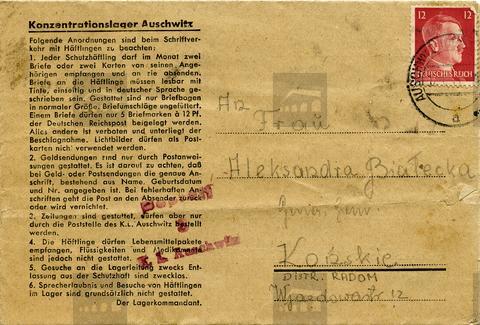 Konzentrationslager Auschwitz
Folgende Anordnungen sind beim Schriftver-
kehr mit Häftlingen zu beachten:
1. Jeder Schutzhäftling darf im Monat zwei
Briefe oder zwei Karten von seinen Ange-
hörigen empfangen und an sie absenden.
Briefe an die Häftlinge müssen lesbar mit
Tinte, einseitig und in deutscher Sprache ge-
schrieben sein. Gestattet sind nur Briefbogen
in normaler Größe, Briefumschläge ungefüttert.
Einem Briefe dürfen nur 5 Briefmarken à 12 Pf.
der Deutschen Reichspost beigelegt werden.
Alles andere ist verboten und unterliegt der
Beschlagnahme. Lichtbilder dürfen als Post-
karten nicht verwendet werden.
2. Geldsendungen sind nur durch Postanwei-
sungen gestattet. Es ist darauf zu achten, daß
bei Geld- oder Postsendungen die genaue An-
schrift, bestehend aus Name, Geburtsdatum
und Nr. angegeben ist. Bei fehlerhaften An-
schriften geht die Post an den Absender zurück
oder wird vernichtet.
3. Zeitungen sind gestattet, dürfen aber nur
durch die Poststelle des K.L. Auschwitz bestellt
werden.
4. Die Häftlinge dürfen Lebensmittelpakete
empfangen, Flüssigkeiten und Medikamente
sind jedoch nicht gestattet.
5. Gesuche an die Lagerleitung zwecks Ent-
lassung aus der Schutzhaft sind zwecklos.
6. Sprecherlaubnis und Besuche von Häftlingen
im Lager sind grundsätzlich nicht gestattet.
Der Lagerkommandant.
K.L. Auschwitz
12 12
DEUTSCHES REICH
AUSCHWITZ
a
An
Frau
Aleksandra
Końskie
DISTR. RADOM
12